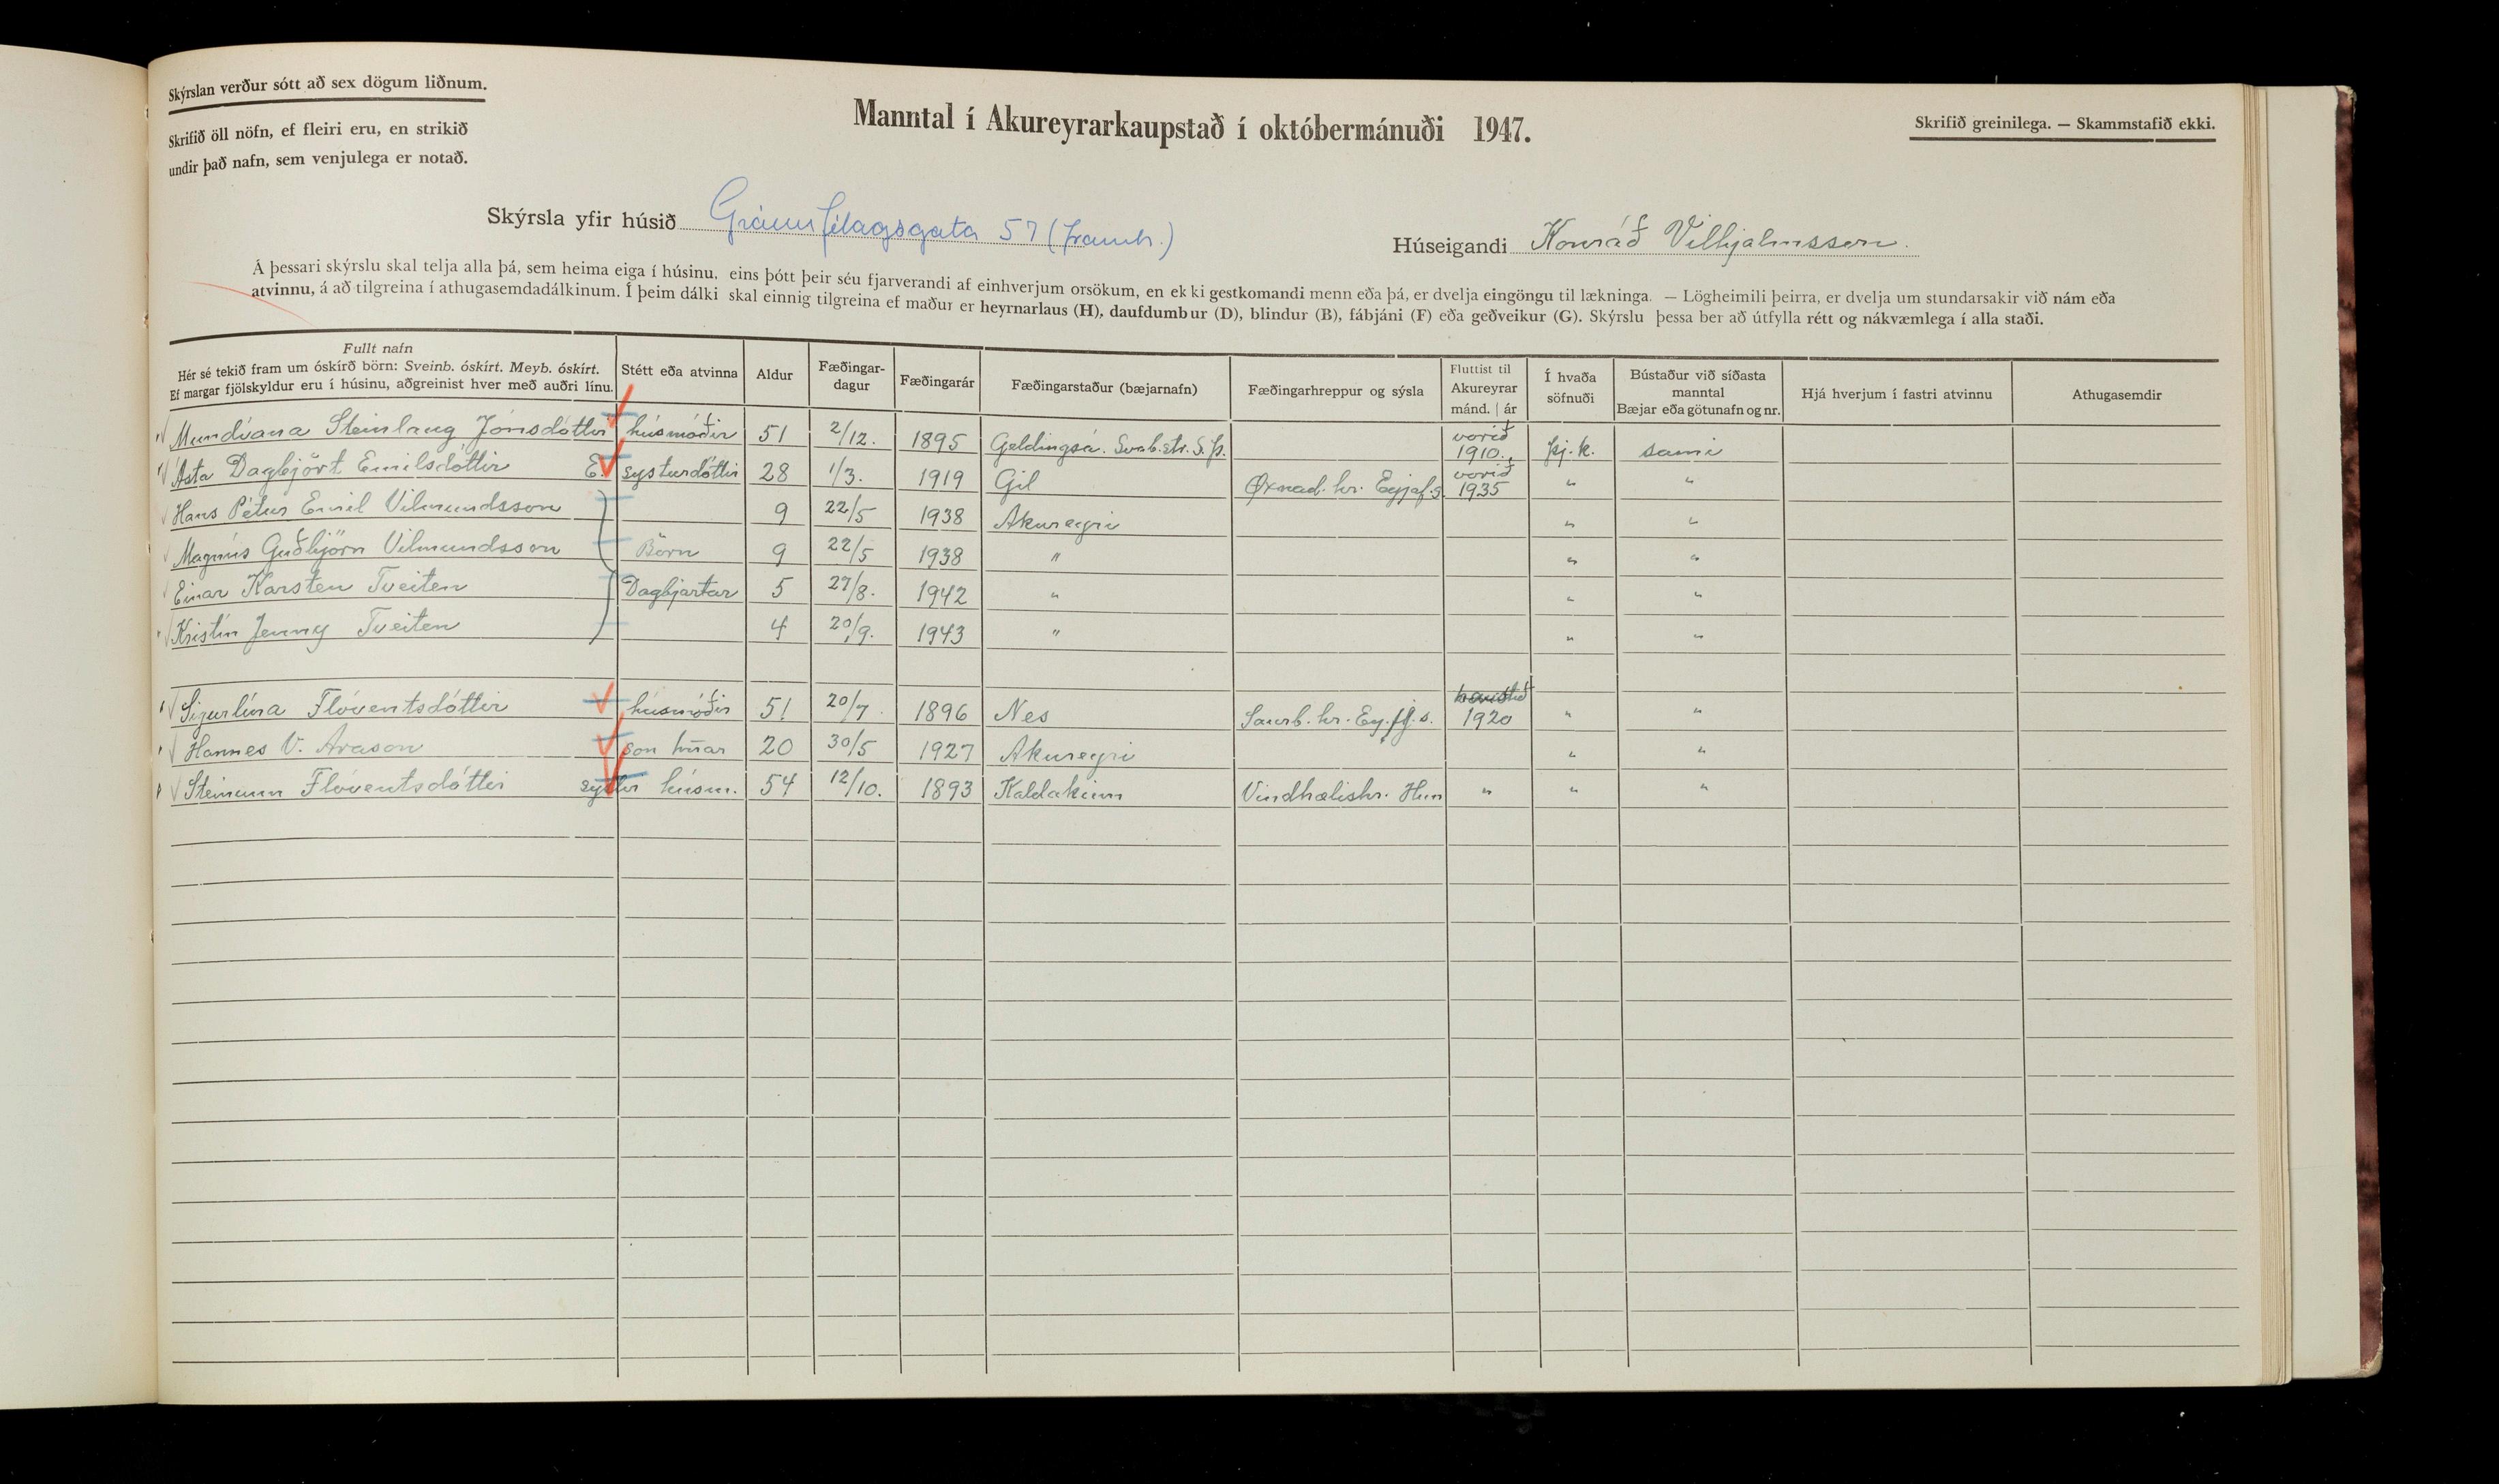 Skýrslan verður sótt að sex dögum liðnum.
Skrifið öll nöfn, ef fleiri eru, en strikið
undir það nafn, sem venjulega er notað.
Manntal í Akureyrarkaupstað í októbermánuði 1947.
Skrifið greinilega. — Skammstafið ekki.
Skýrsla yfir húsið Gránufélagsgata 57 (framh.)
Húseigandi Konráð Vilhjalmsson.
Á þessari skýrslu skal telja alla þá, sem heima eiga í húsinu, eins þótt þeir séu fjarverandi af einhverjum orsökum, en ekki gestkomandi menn eða þá, er dvelja eingöngu til lækninga. — Lögheimili þeirra, er dvelja um stundarsakir við nám eða
atvinnu, á að tilgreina í athugasemdadálkinum. Í þeim dálki skal einnig tilgreina ef maður er heyrnarlaus (H), daufdumbur (D), blindur (B), fábjáni (F) eða geðveikur (G). Skýrslu þessa ber að útfylla rétt og nákvæmlega í alla staði.
Fullt nafn
Hér sé tekið fram um óskírð börn: Sveinb. óskírt. Meyb. óskírt.
Ef margar fjölskyldur eru í húsinu, aðgreinist hver með auðri línu.
Stétt eða atvinna
Aldur
Fæðingar-
dagur
Fæðingarár
Fæðingarstaður (bæjarnafn)
Fæðingarhreppur og sýsla
Fluttist til
Akureyrar
mánd. | ár
Í hvaða
söfnuði
Bústaður við síðasta
manntal
Bæjar eða götunafn og nr.
Hjá hverjum í fastri atvinnu
Athugasemdir
Mundíana Steinlaug Jónsdóttir húsmóðir 51 2/12. 1895 Geldingsá. Svalb.str. S.Þ. vorið 1910. þj.k. sami
Ásta Dagbjört Emilsdóttir E. systurdóttir 28 1/3. 1919 Gil Øxnad. hr. Eyjaf.s. vorið 1935 " "
Hans Pétur Emil Vilmundsson 9 22/5 1938 Akureyri " "
Magnús Guðbjörn Vilmundsson Börn 9 22/5 1938 " " "
Einar Karsten Tveiten Dagbjartar 5 27/8. 1942 " " "
Kristín Jenny Tveiten 4 20/9. 1943 " " "
Sigurlína Flóventsdóttir húsmóðir 51 20/7. 1896 Nes Saurb. hr. Ey.fj.s. haustið 1920 " "
Hannes V. Arason son hênar 20 30/5 1927 Akureyri " "
Steinunn Flóventsdóttir systir húsm. 54 12/10. 1893 Kaldakinn Vindhælishr. Hún " " "